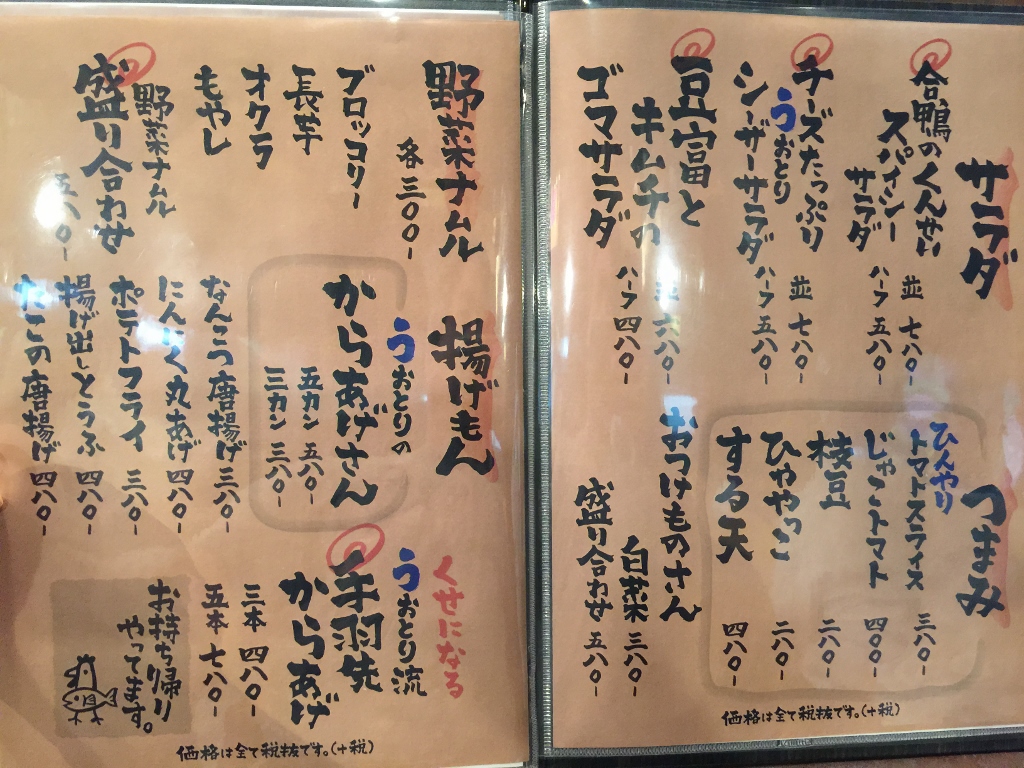 サラダ
合鴨のくんせい
スパイシー
サラダ
並 七八〇-
ハーフ 五八〇-
チーズたっぷり
うおとり
シーザーサラダ
並 七八〇-
ハーフ 五八〇-
豆富と
キムチの
ゴマサラダ
並 六八〇-
ハーフ 四八〇-
つまみ
ひんやり
トマトスライス 三八〇-
じゃこトマト 四〇〇-
枝豆 二八〇-
ひややっこ 二八〇-
する天 四八〇-
おつけものさん
白菜 三八〇-
盛り合わせ 五八〇-
価格は全て税抜です。(+税)
野菜ナムル
各 三〇〇-
ブロッコリー
長芋
オクラ
もやし
野菜ナムル
盛り合わせ
五八〇-
揚げもん
うおとりの
からあげさん
五カン 五八〇-
三カン 三八〇-
なんこつ唐揚げ 三八〇-
にんにく丸あげ 四八〇-
ポテトフライ 三八〇-
揚げ出しとうふ 四八〇-
たこの唐揚げ 四八〇-
くせになる
うおとり流
手羽先
からあげ
三本 四八〇-
五本 七八〇-
お持ち帰り
やってます。
価格は全て税抜です。(+税)